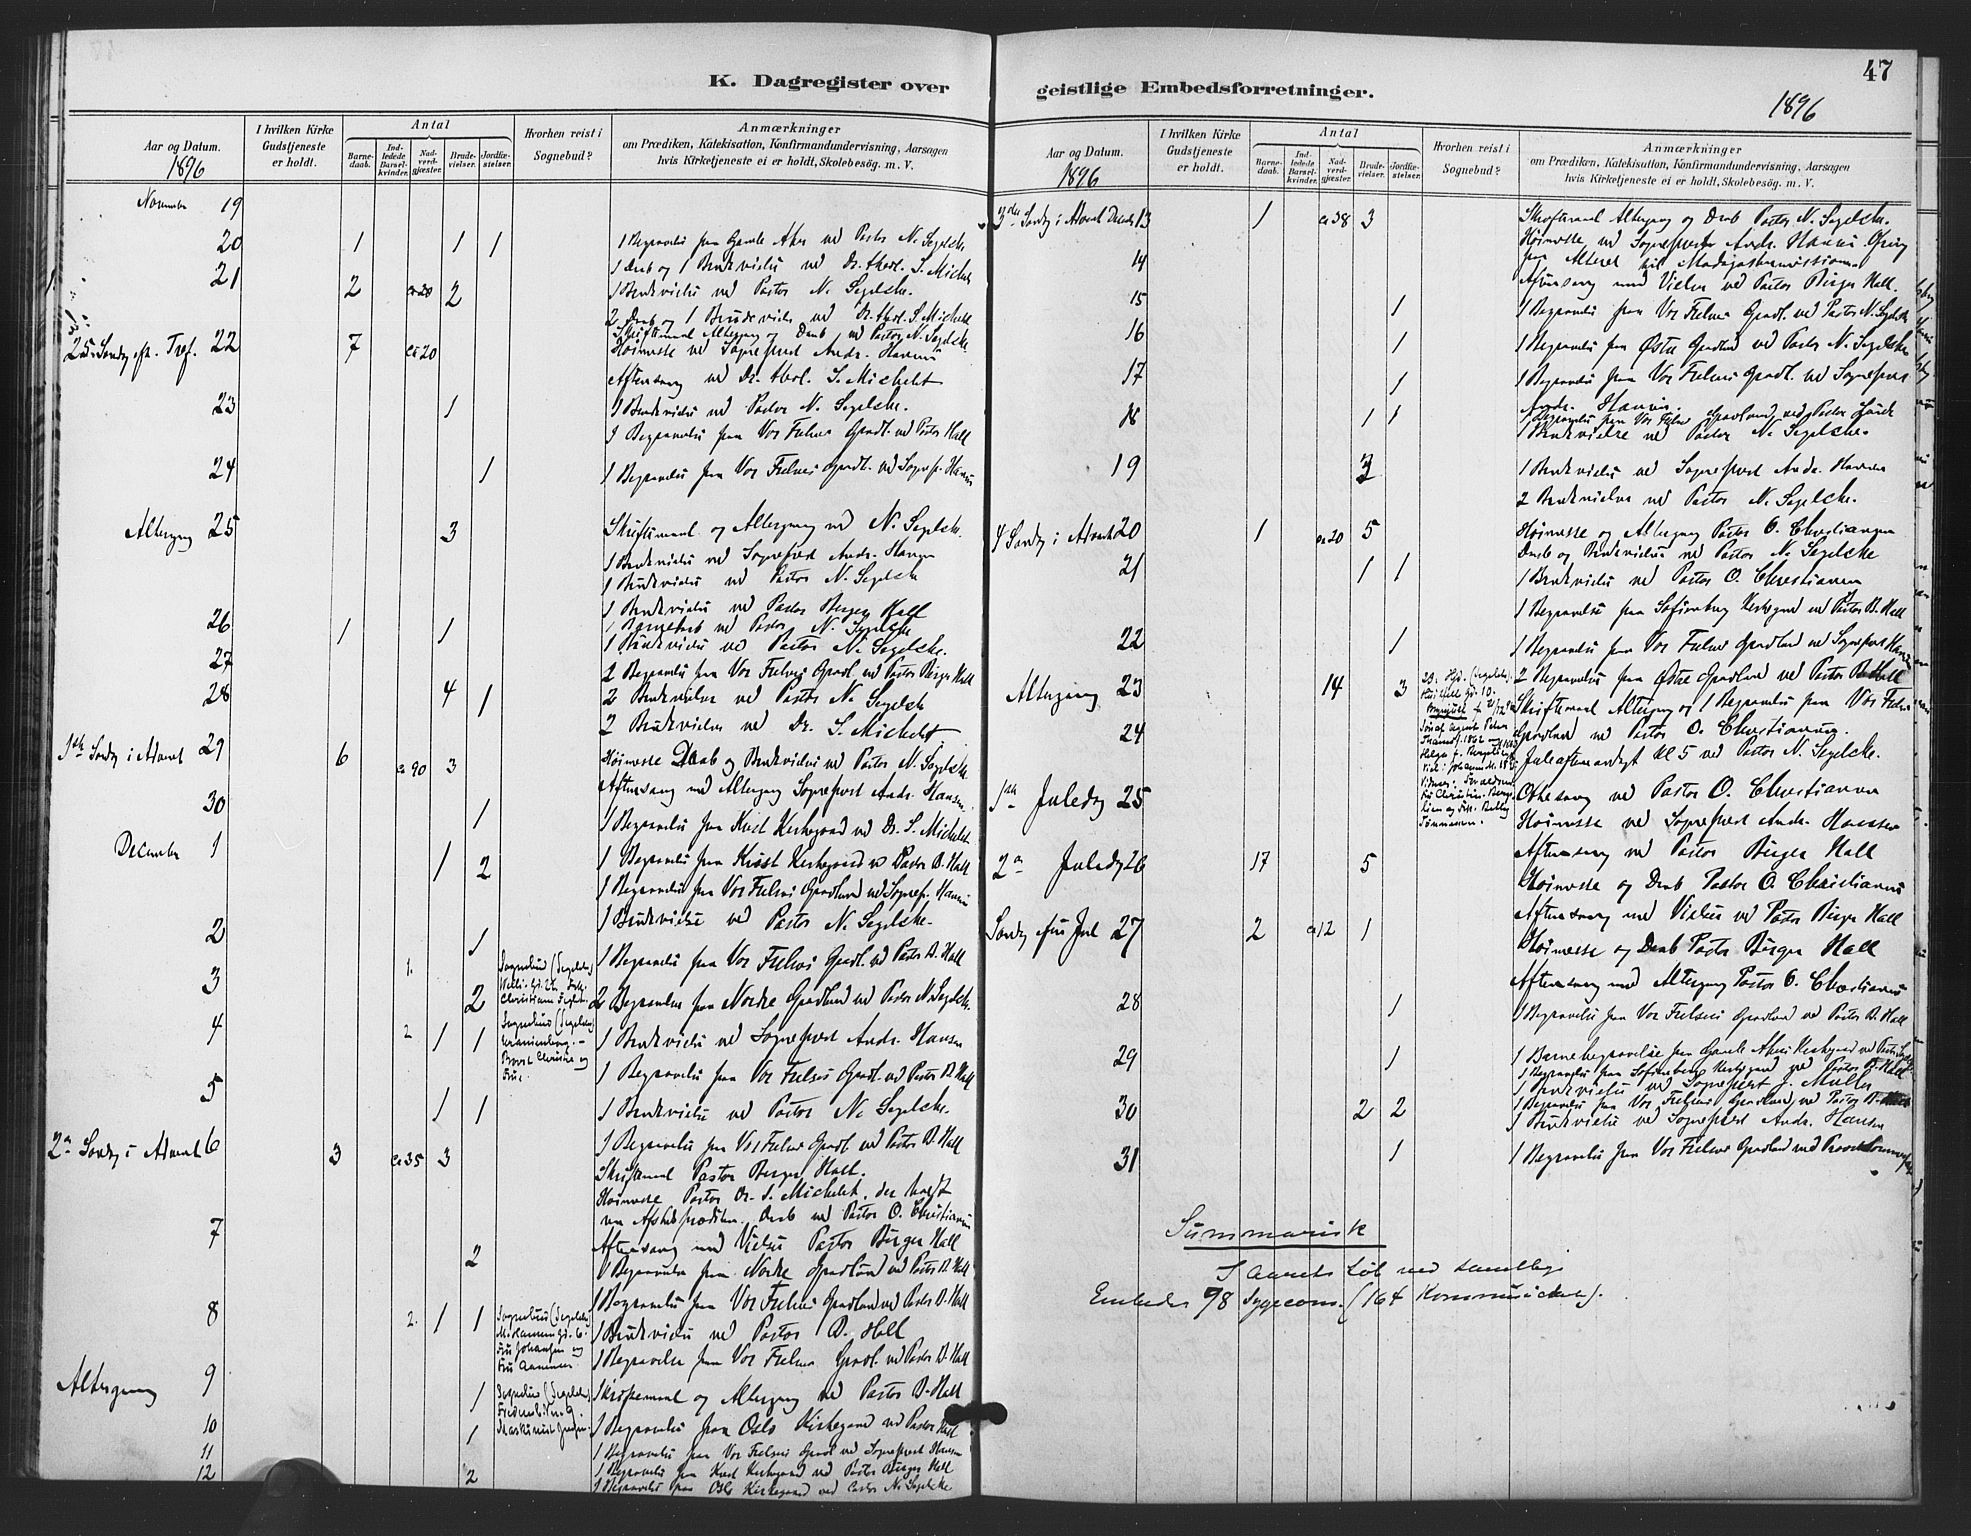 K. Dagregister over
Aar og Datum.
1896
I hvilken Kirke
Gudstjeneste
er holdt.
Antal
Barne-
daab.
Ind-
ledede
Barsel-
kvinder.
Nad-
verd-
gjæster.
Brude-
vielser.
Jordfæ-
stelser.
Hvorhen reist i
Sognebud?
Anmærkninger
om Prædiken, Katekisation, Konfirmandundervisning, Aarsagen
hvis Kirketjeneste ei er holdt, Skolebesög. m. V.
November 19
20 1 1 1
1 Begravelse fra Gamle Aker ved Pastor N. Segelcke
1 Daab og 1 Brudevielse ved Dr. theol. S. Michelet
21 2 ca 20 2
1 Brudevielse ved Pastor N. Segelcke.
2 Daab og 1 Brudevielse ved Dr. theol. S. Michelet
25. Søndag eft. Tref. 22 7 ca 20
Skriftemaal Altergang og Daab ved Pastor N. Segelcke
Høimesse ved Sognepræst Andr. Hansen
Aftensang ved Dr. theol. S. Michelet
23 1
1 Brudevielse ved Pastor N. Segelcke.
1 Begravelse fra Vor Frelsers Gravl. ved Pastor Hall
24 1
1 Begravelse fra Vor Frelsers Gravl. ved Sognepr. Hansen
Altergang 25 3
Skriftemaal og Altergang ved N. Segelcke.
1 Brudevielse ved Sognepræst Andr. Hansen
1 Brudevielse ved Pastor N. Segelcke
1 Brudevielse ved Pastor Birger Hall
26 1 1
1 Barnedaab ved Pastor N. Segelcke
1 Brudevielse ved Pastor N. Segelcke.
27
2 Begravelse fra Vor Frelsers Gravl ved Pastor Birger Hall
28 4 1
2 Brudevielser ved Pastor N. Segelcke
2 Brudevielser ved Dr. S. Michelet
1ste Søndag i Advent 29 6 ca 90 3
Høimesse Daab og Brudevielse ved Pastor N. Segelcke
Aftensang med Altergang Sognepræst Andr. Hansen.
30 1
1 Begravelse fra Krist Kirkegaard ved Dr. S. Michelet
December 1 1 2
1 Begravelse fra Krist Kirkegaard v Pastor B. Hall
1 Begravelse fra Vor Frelsers Gravlund ved Sognepr. Hansen
1 Brudevielse ved Pastor N. Segelcke.
2 1
1 Begravelse fra Vor Frelsers Gravl. ved Pastor B. Hall
3 1. 2
Sognebud (Segelcke)
2 Begravelser fra Nordre Gravlund ved Pastor N. Segelcke.
4 2 1 1
Sognebud (Segelcke)
1 Brudevielse ved Sognepræst Andr. Hansen
1 Begravelse fra Vor Frelsers Gravl. ved Pastor B. Hall
5 1 1
1 Brudevielse ved Pastor N. Segelcke.
1 Begravelse fra Vor Frelsers Gravl ved Pastor B. Hall
2den Søndag i Advent 6 3 ca 35 3
Skriftemaal Pastor Birger Hall.
Høimesse Pastor Dr. S. Michelet, der holdt
Afskedsprædiken. Daab ved Pastor O. Christiansen
Aftensang med Vielse Pastor Birger Hall
7 2
1 Begravelse fra Nordre Gravlund ved Pastor B. Hall
1 Begravelse fra Vor Frelsers Gravlund ved Pastor B. Hall
8 2. 1 1
Sognebud (Segelcke)
1 Brudevielse ved Pastor B. Hall
1 Begravelse fra Vor Frelsers Gravl. ved Pastor B. Hall
Altergang 9 1
Sognebud (Segelcke)
Skriftemaal og Altergang ved Pastor B. Hall
10 1
1 Begravelse fra Oslo Kirkegaard ved Pastor Hall
11
1 Begravelse fra Vor Frelsers Gravl ved Sognepræst Hansen
12 2
1 Begravelse fra Krist Kirkegaard ved Pastor Birger Hall
1 Begravelse fra Oslo Kirkegaard ved Pastor N. Segelcke
47
geistlige Embedsforretninger.
1896
Aar og Datum.
1896
I hvilken Kirke
Gudstjeneste
er holdt.
Antal
Barne-
daab.
Ind-
ledede
Barsel-
kvinder.
Nad-
verd-
gjæster.
Brude-
vielser.
Jordfæ-
stelser.
Hvorhen reist i
Sognebud?
Anmærkninger
om Prædiken, Katekisation, Konfirmandundervisning, Aarsagen
hvis Kirketjeneste ei er holdt, Skolebesög. m. V.
3die Søndag i Advent Decmbr 13 1 ca 38 3
Skriftemaal Altergang og Daab Pastor N. Segelcke.
Høimesse ved Sognepræst Andr. Hansen Ofring
fra Alteret til Madagaskarmissionen
14
Aftensang med Vielser ved Pastor Birger Hall.
15 1
1 Begravelse fra Vor Frelsers Gravl. ved Pastor N. Segelcke
16 1
1 Begravelse fra Østre Gravlund ved Pastor N. Segelcke
17 1
1 Begravelse fra Vor Frelsers Gravl. ved Sognepræst
Andr. Hansen.
18 1 1
1 Begravelse fra Vor Frelser Gravlund ved Pastor
1 Brudevielse ved Pastor N. Segelcke.
19 3
1 Brudevielse ved Sognepræst Andr. Hansen
2 Brudevielser ved Pastor N. Segelcke.
4 Søndag i Advent 20 1 ca 20 5
Høimesse og Altergang Pastor O. Christiansen
Daab og Brudevielser ved Pastor N. Segelcke
21 1 1
1 Brudevielse ved Pastor O. Christiansen
1 Begravelse fra Sofienberg Kirkegaard ved Pastor B. Hall
22 1
1 Begravelse fra Vor Frelsers Gravlund ved Sognepræst Hansen
Altergang 23 14 3
2 Begravelse fra Østre Gravlund ved Pastor B. Hall
Skriftemaal Altergang og 1 Begravelse fra Vor Frelsers
Gravlund ved Pastor O. Christiansen.
24
Juleaftenandagt Kl 5 ved Pastor N. Segelcke.
1ste Juledag 25
Ottesang ved Pastor O. Christiansen
Høimesse ved Sognepræst Andr. Hansen
Aftensang ved Pastor Birger Hall
2den Juledag 26 17 5
Høimesse og Daab Pastor O. Christiansen
Aftensang med Vielser ved Pastor Birger Hall
Søndag efter Jul 27 2 ca 12 1
Høimesse og Daab Pastor Birger Hall
Aftensang med Altergang Pastor O. Christiansen
28 1
1 Begravelse fra Vor Frelsers Gravlund ved Pastor B. Hall
29 1
1 Barnebegravelse fra Gamle Akers Kirkegaard ved Pastor
1 Begravelse fra Sofienberg Kirkegaard ved Pastor B. Hall
1 Brudevielse ved Sognepræst J. Müller
30 2 2
1 Begravelse fra Vor Frelsers Gravlund ved Pastor B. Hall
1 Brudevielse ved Sognepræst Andr. Hansen
31 1
1 Begravelse fra Vor Frelsers Gravlund ved
Summarisk
I Aarets Løb ved samtlige
Embeder 98 Sygecom. (164 Kommunicanter).